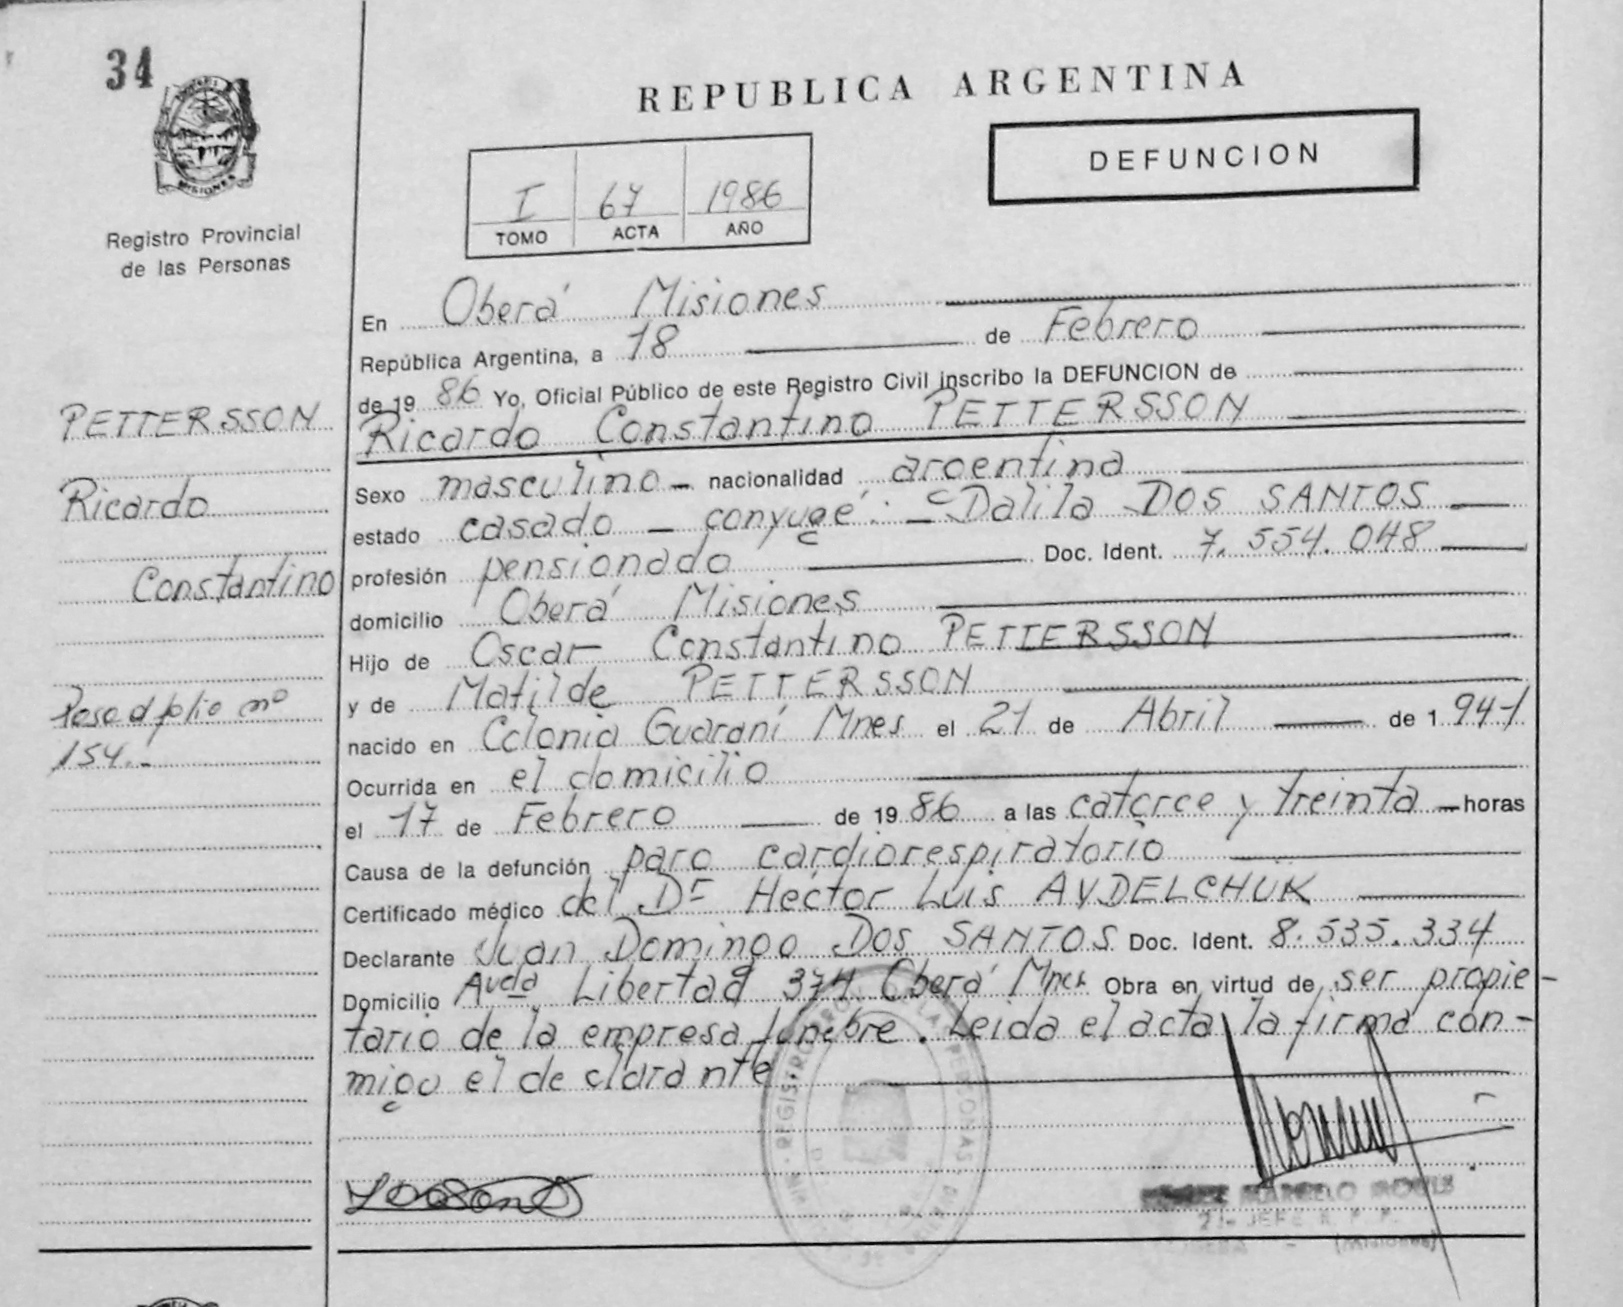 34
MISIONES
Registro Provincial
de las Personas
PETTERSSON
Ricardo
Constantino
Pasa al folio nº
154.-
REPUBLICA ARGENTINA
DEFUNCION
I 67 1986
TOMO ACTA AÑO
En Oberá Misiones
República Argentina, a 18 de Febrero
de 19 86 Yo, Oficial Público de este Registro Civil inscribo la DEFUNCION de
Ricardo Constantino PETTERSSON
Sexo masculino - nacionalidad argentina
estado casado - conyuge: - Dalila DOS SANTOS
profesión pensionado Doc. Ident. 7.554.048
domicilio Oberá Misiones
Hijo de Oscar Constantino PETTERSSON
y de Matilde PETTERSSON
nacido en Colonia Guaraní Mnes el 21 de Abril de 1 941
Ocurrida en el domicilio
el 17 de Febrero de 19 86 a las catorce y treinta - horas
Causa de la defunción paro cardiorespiratorio
Certificado médico del Dr Héctor Luis AYDELCHUK
Declarante Juan Domingo DOS SANTOS Doc. Ident. 8.535.334
Domicilio Avda Libertad 374 Oberá Mnes Obra en virtud de ser propie-
tario de la empresa fúnebre. Leida el acta la firma con-
migo el declarante.
MARCELO
JEFE R. P. P.
(Misiones)